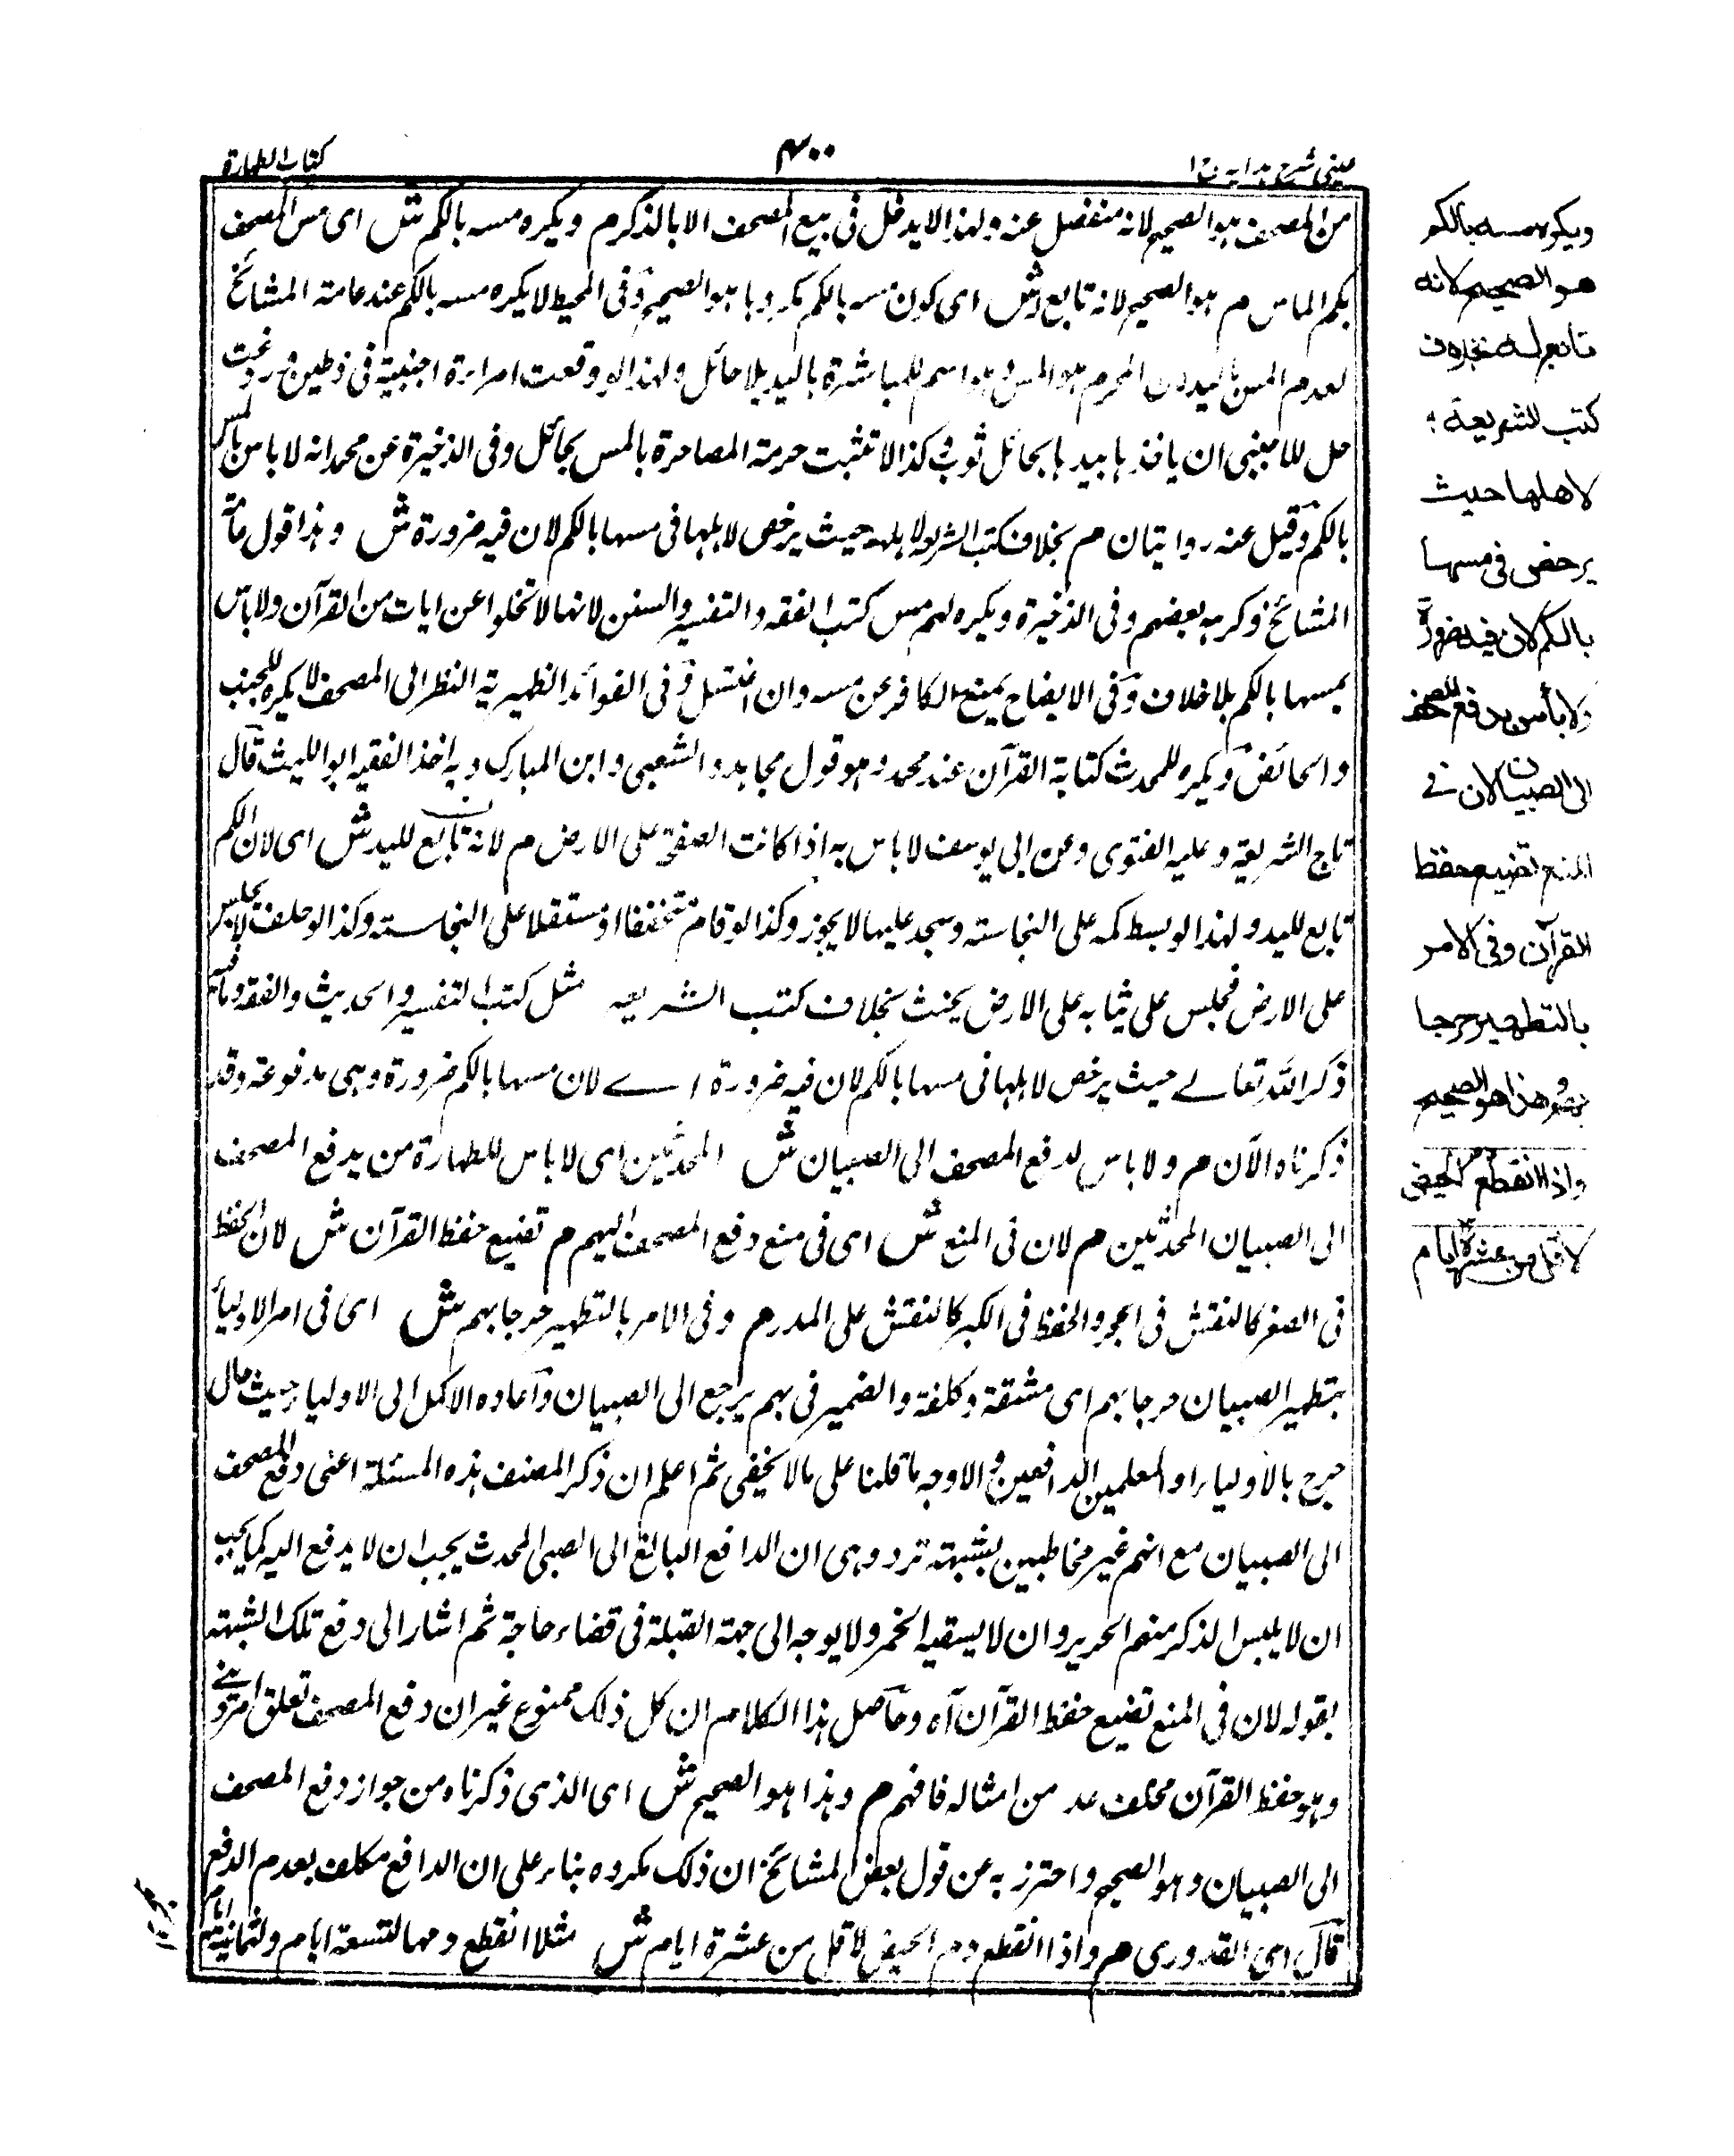 عينى شرح هدايه ج ١
٤٠٠
كتاب الطهارة
من المصحف هو الصحيح لانه منفصل عنه ولهذا لا يدخل فى بيع المصحف الا بالذكر م ويكره مسه بالكم ش اى مس المصحف
بكم الماس م هو الصحيح لانه تابع له ش اى كون مسه بالكم مكروها هو الصحيح وفى المحيط لا يكره مسه بالكم عند عامة المشائخ
لعدم المس باليد لان المحرم هو المس وهو اسم للمباشرة باليد بلا حائل ولهذا لو وقعت امراءة اجنبية فى طين
حل للاجنبى ان ياخذها بيدها بحائل ثوب وكذا لا تثبت حرمة المصاهرة بالمس بحائل وفى الذخيرة عن محمد انه لا باس بالمس
بالكم وقيل عنه روايتان م بخلاف كتب الشريعة لاهلها حيث يرخص لاهلها فى مسها بالكم لان فيه ضرورة ش وهذا قول عامة
المشائخ وكرهه بعضهم وفى الذخيرة ويكره لهم مس كتب الفقه والتفسير والسنن لانها لا تخلوا عن ايات من القرآن ولا باس
بمسها بالكم بلا خلاف وفى الايضاح يمنع الكافر عن مسه وان اغتسل وفى الفوائد الظهيرية النظر الى المصحف لا يكره للجنب
والحائض ويكره للمحدث كتابة القرآن عند محمد وهو قول مجاهد والشعبى وابن المبارك وبه اخذ الفقيه ابو الليث قال
تاج الشريعة وعليه الفتوى وعن ابى يوسف لا باس به اذا كانت الصحيفة على الارض م لانه تابع لليد ش اى لان الكم
تابع لليد ولهذا لو بسط كمه على النجاسة وسجد عليها لا يجوز وكذا لو قام متخففا او منتعلا على النجاسة وكذا لو حلف لا يجلس
على الارض فجلس على ثيابه على الارض يحنث بخلاف كتب الشريعه مثل كتب التفسير والحديث والفقه وما فيه
ذكر الله تعالے حيث يرخص لاهلها فى مسها بالكم لان فيه ضرورة اے لان مسها بالكم ضرورة وهى مدفوعة وقد
ذكرناه الآن م ولا باس لدفع المصحف الى الصبيان ش المحدثين اى لا باس للطهارة من يدفع المصحف
الى الصبيان المحدثين م لان فى المنع ش اى فى منع دفع المصحف اليهم م تضييع حفظ القرآن ش لان الحفظ
فى الصغر كالنقش فى الحجر والحفظ فى الكبر كالنقش على المدر م وفى الامر بالتطهير حرجا بهم ش اى فى امر الاولياء
بتطهير الصبيان حرجا بهم اى مشقة وكلفة والضمير فى بهم يرجع الى الصبيان واعاده الاكمل الى الاولياء حيث قال
حرج بالاولياء او المعلمين الدافعين والاوجه ما قلنا على ما لا يخفى ثم اعلم ان ذكر المصنف هذه المسئلة اعنى دفع المصحف
الى الصبيان مع انهم غير مخاطبين بشبهة ترد وهى ان الدافع البالغ الى الصبى المحدث يجب ان لا يدفع اليه كما يجب
ان لا يلبس الذكر منهم الحرير وان لا يسقيه الخمر ولا يوجه الى جهة القبلة فى قضاء حاجة ثم اشار الى دفع تلك الشبهة
بقوله لان فى المنع تضييع حفظ القرآن آه وحاصل هذا الكلام ان كل ذلك ممنوع غير ان دفع المصحف تعلق امر دينى
وهو حفظ القرآن تخلف عـد من امثاله فافهم م وهذا هو الصحيح ش اى الذى ذكرناه من جواز دفع المصحف
الى الصبيان وهو الصحيح واحترز به عن قول بعض المشائخ ان ذلك مكروه بناء على ان الدافع مكلف بعدم الدفع
قال اى القدورى م واذا انقطع دم الحيض لاقل من عشرة ايام ش مثلا انقطع دمها لتسعة ايام ولثمانية ايام
ويكره مسه بالكم
هو الصحيح لانه
تابع له بخلاف
كتب الشريعة
لاهلها حيث
يرخص فى مسها
بالكم لان فيه ضرورة
ولا بأس بدفع المصحف
الى الصبيان لان فے
المنع تضييع حفظ
القرآن وفى الامر
بالتطهير حرجا
بهم وهذا هو الصحيح
واذا انقطع دم الحيض
لاقل من عشرة ايام